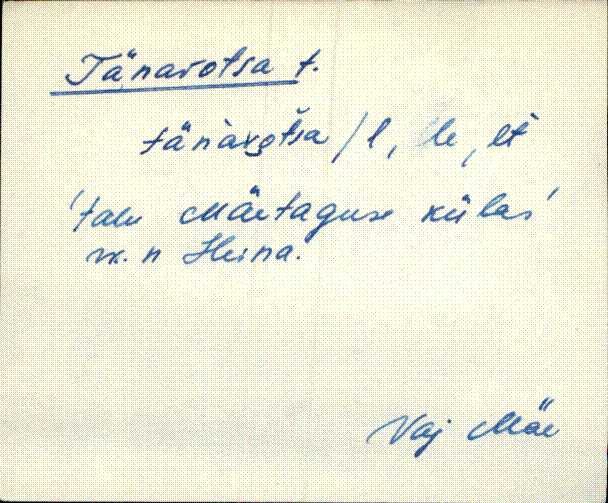 Tänavotsa t.
tänàvọtsa / l, lle, lt
'talu Mäetaguse külas'
rk. n Heina.
Vaj Mäe